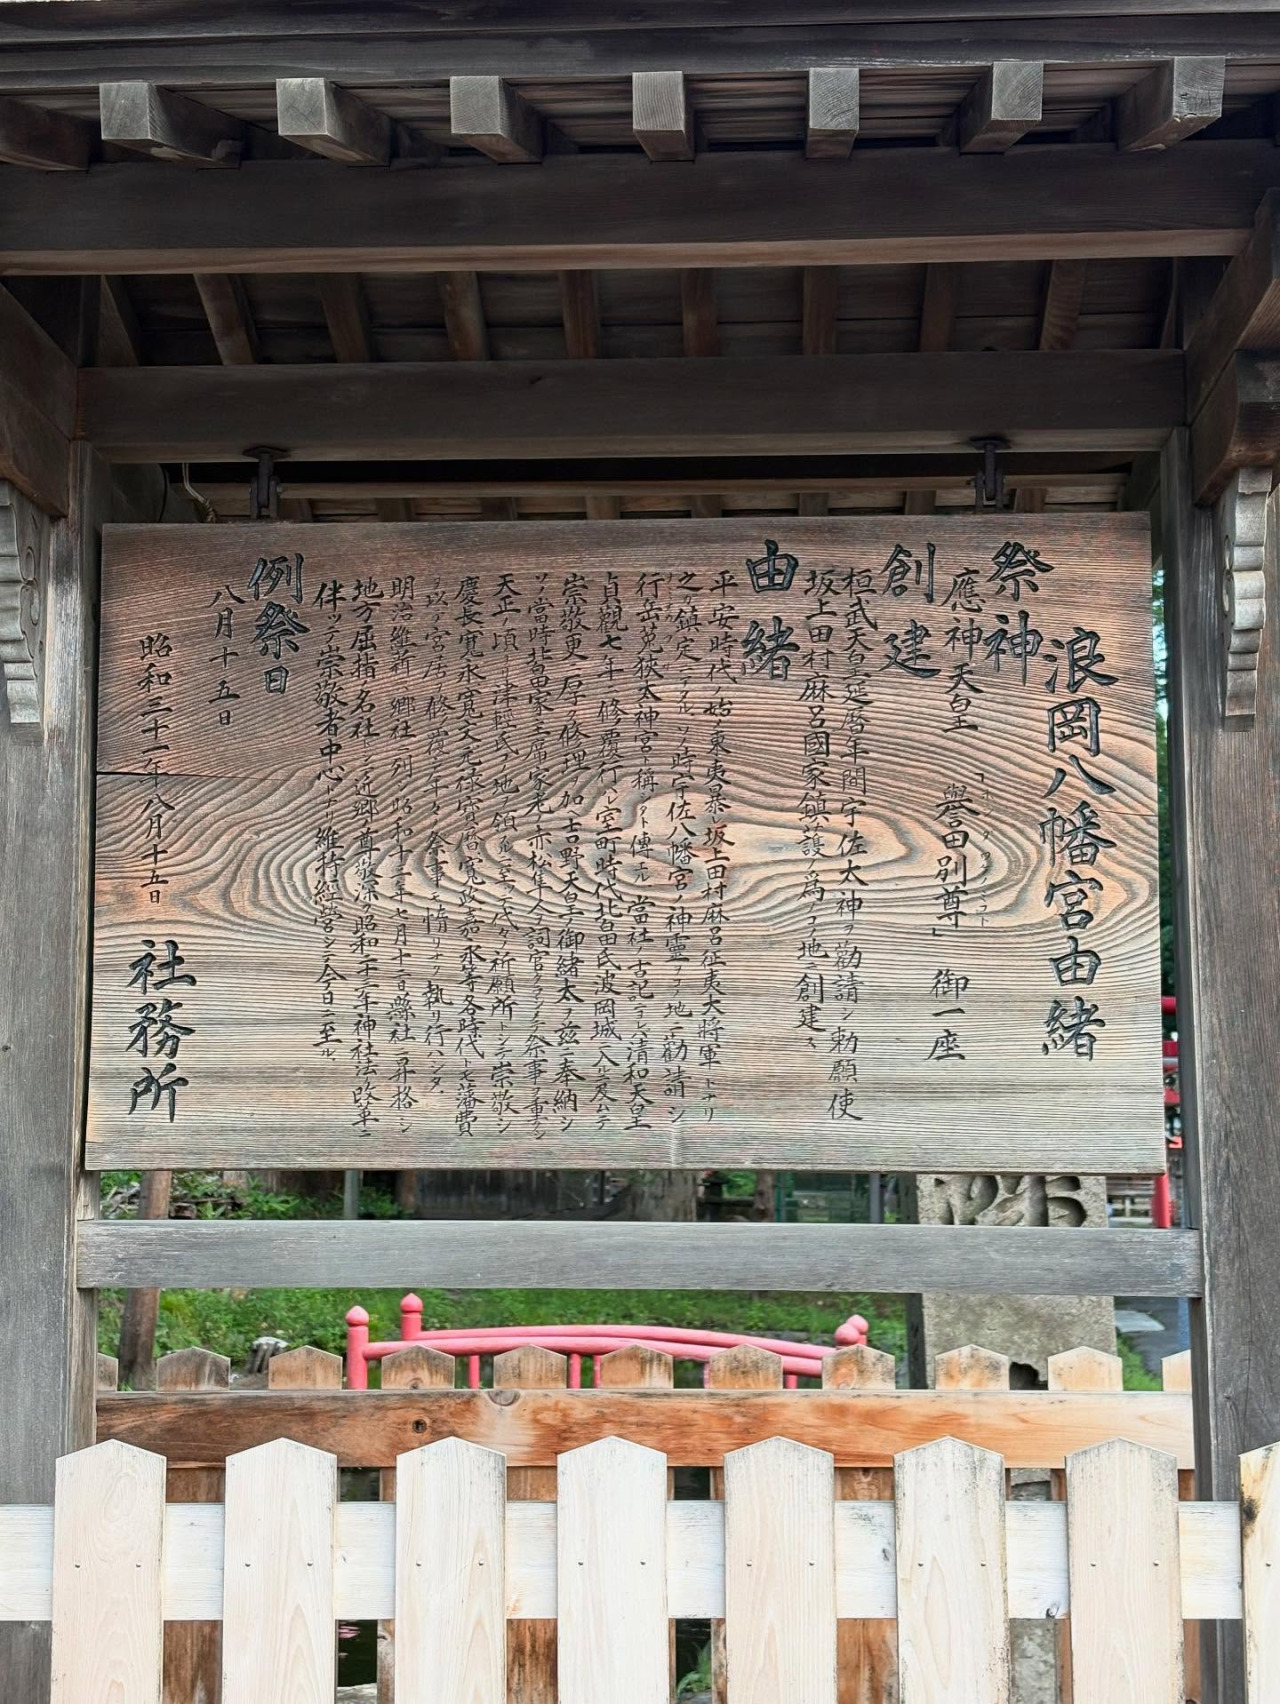 浪岡八幡宮由緒
祭神
應神天皇 「譽田別尊」 御一座
ホンダワケノミコト
創建
桓武天皇延暦年間宇佐太神ヲ勸請シ勅願使
坂上田村麻呂國家鎮護ノ爲メコノ地ニ創建ス
由緒
平安時代ノ始メ東夷暴レ坂上田村麻呂征夷大將軍トナリ
之ヲ鎮定ニアル、ソノ時宇佐八幡宮ノ神靈ヲコノ地ニ勸請シ
行岳莵狹太神宮ト稱ヘタト傳エル、當社ノ古記ニレバ清和天皇
貞觀七年ニ修覆行ハレ室町時代北畠氏波岡城ニ入ルニ及ムデ
崇敬更ニ厚ク修理ヲ加ヘ吉野天皇御緒太ヲ茲ニ奉納シ
ソノ當時北畠家ノ主席家老赤松隼人ヲ詞官タラシメテ祭事ヲ重クシ
天正ノ頃ヨリ津輕氏ノ地ヲ領スルニ至ツテ代々ノ祈願所トシテ崇敬シ
慶長寛永寛文元祿寳暦寛政嘉永等各時代トモ藩費
ヲ以テ宮居ノ修覆ニ年々ノ祭事モ惰リナク執リ行ハシタ、
明治維新ニ郷社ニ列シ昭和十二年七月十二日縣社ニ昇格シ
地方屈指ノ名社トシテ近郷尊敬深ク昭和二十二年神社法ノ改革ニ
伴ツテ崇敬者中心トナリ維持經營シテ今日ニ至ル、
例祭日
八月十五日
昭和三十一年八月十五日
社務所